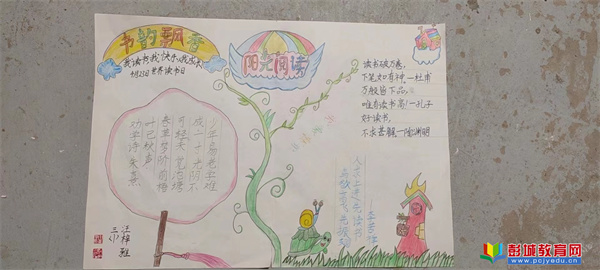 书韵飘香
我读书我快乐我成长
4月23日世界读书日
阳光阅读
读书破万卷，
下笔如有神，一杜甫
万般皆下品，
唯有读书高！一孔子
好读书，
不求甚解一陶渊明
少年易老学难
成一寸光阴不
可轻未觉池塘
春草梦阶前梧
叶已秋声
劝学诗朱熹
三小
彭城教育网
www.pcjyedu.cn